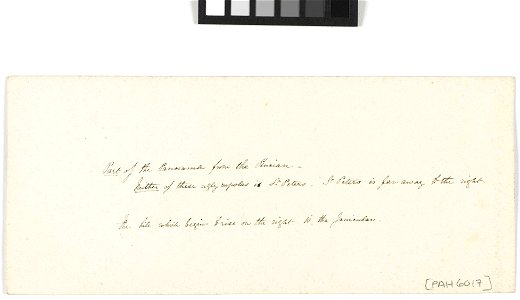 Part of the Panorama from the Pincian -
Neither of these ugly cupolas is St Peters. St Peters is far away to the right
The hill which begins to rise on the right is the Janiculan.
[PAH6017]